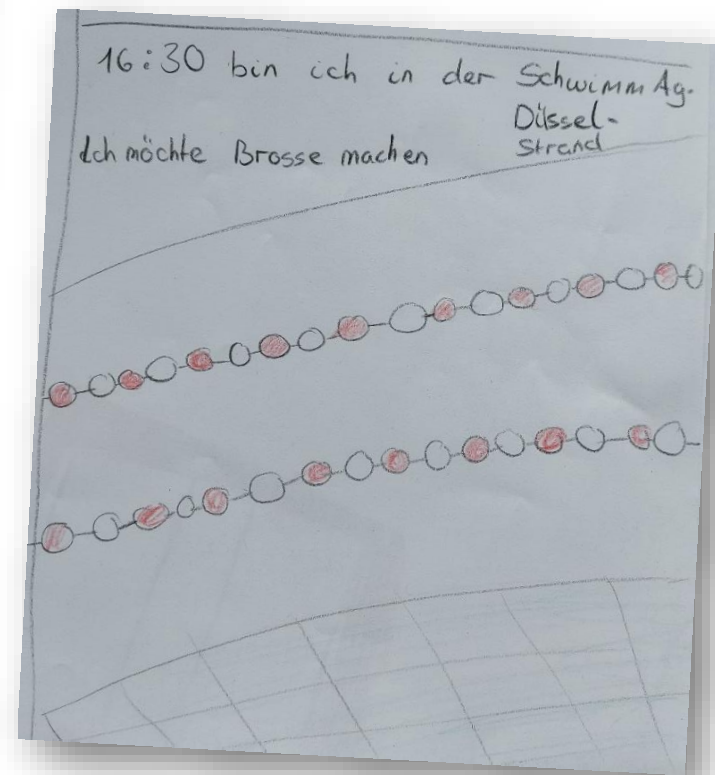 16:30 bin ich in der Schwimm Ag.
Düssel-
strand
Ich möchte Brosse machen